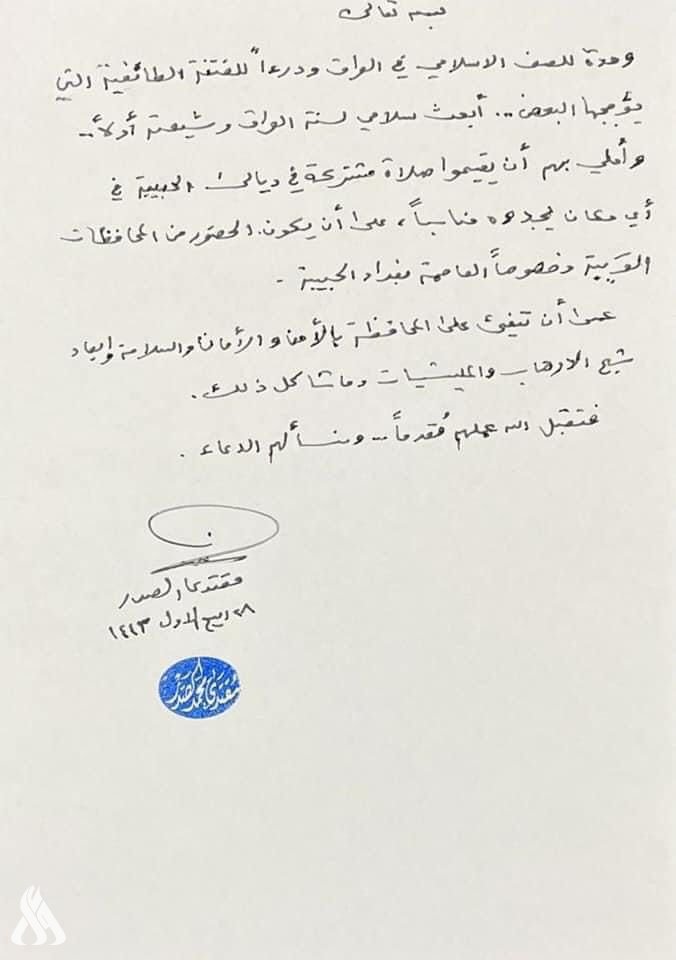 بسمه تعالى
وحدة للصف الاسلامي في العراق ودرءاً للفتنة الطائفية التي
يؤججها البعض .. أبعث سلامي لسنة العراق وشيعته أولاً..
وأملي بهم أن يقيموا صلاة مشتركة في ديالى الحبيبة في
أي مكان يجدوه مناسباً، على أن يكون الحضور من المحافظات
القريبة وخصوصاً العاصمة بغداد الحبيبة .
عسى أن تفيئ على المحافظة بالأمن والأمان والسلامة وإبعاد
شبح الارهاب والمليشيات وما شاكل ذلك .
فتقبل الله عملهم مُقدماً .. ونسألهم الدعاء .
مقتدى الصدر
٢٨ ربيع الاول ١٤٤٣
مقتدى محمد الصدر